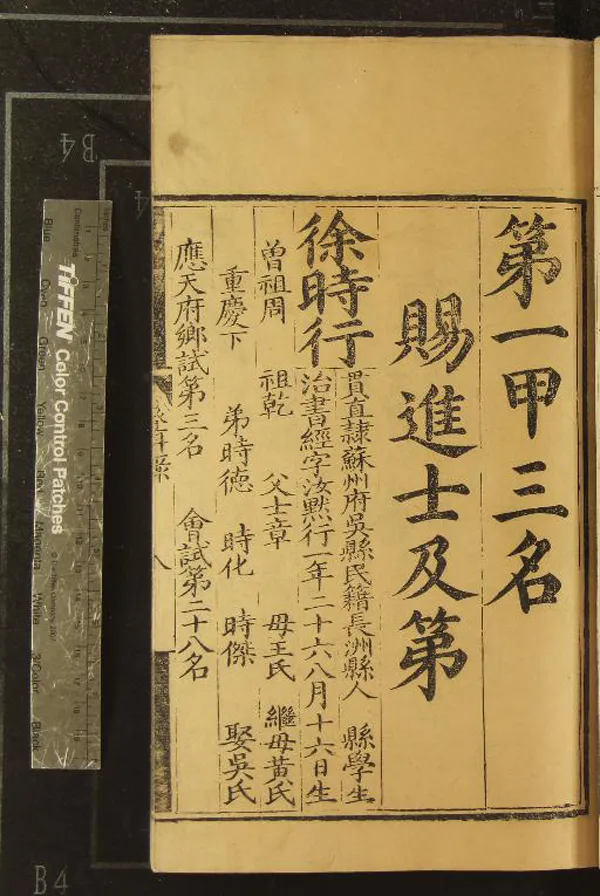 第一甲三名
賜進士及第
徐時行
貫直隸蘇州府吳縣民籍長洲縣人 縣學生
治書經字汝默行一年二十六八月十六日生
曾祖周 祖乾 父士章 母王氏 繼母黃氏
重慶下 弟時德 時化 時傑 娶吳氏
應天府鄉試第三名 會試第二十八名
八
B4
B4
TIFFEN Color Control Patches
Centimetres
Blue
Green
Yellow
Red
Magenta
White
3/Color
Black